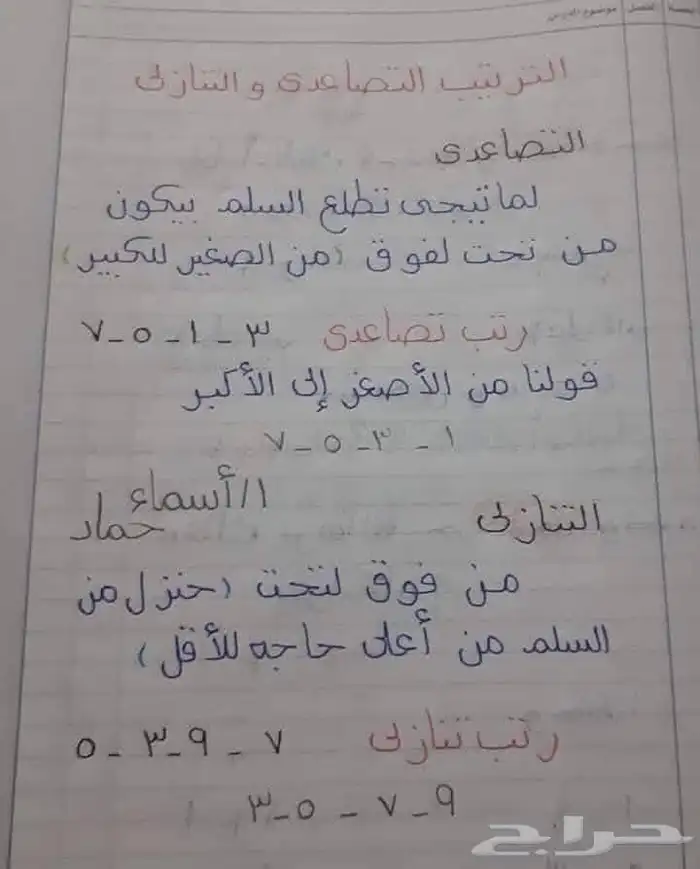 موضوع الدرس
الترتيب التصاعدى و التنازلى
التصاعدى
لما تيجى تطلع السلم بيكون
من تحت لفوق (من الصغير للكبير)
رتب تصاعدى ٣ - ١ - ٥ - ٧
قولنا من الأصغر إلى الأكبر
١ - ٣ - ٥ - ٧
ا/ أسماء حماد
التنازلى
من فوق لتحت (حنزل من
السلم من أعلى حاجه للأقل)
رتب تنازلى ٧ - ٩ - ٣ - ٥
٩ - ٧ - ٥ - ٣
حراج